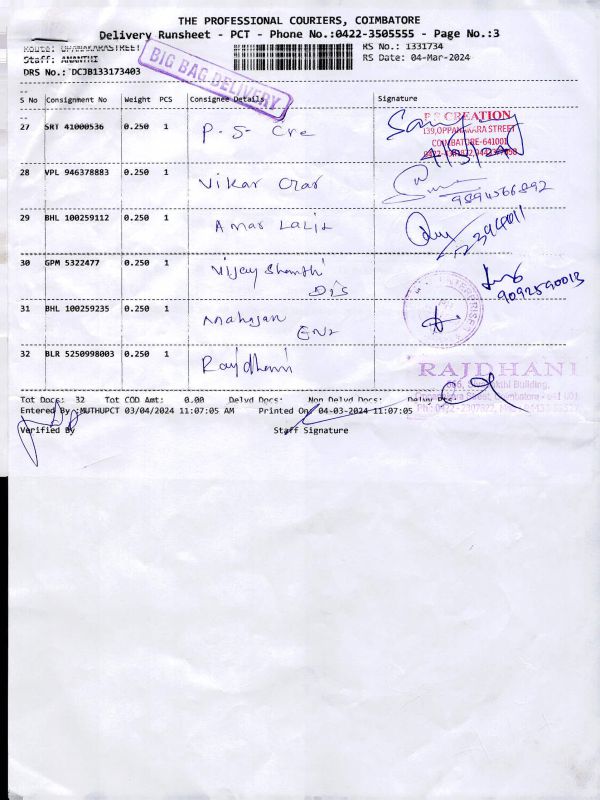 THE PROFESSIONAL COURIERS, COIMBATORE
Delivery Runsheet - PCT - Phone No.:0422-3505555 - Page No.:3
Route: DHANAKARASTREET
RS No.: 1331734
Staff: ANANTHI
RS Date: 04-Mar-2024
DRS No.: DCJB133173403
BIG BAG DELIVERY
S No Consignment No Weight PCS Consignee Details Signature
27 SRT 41000536 0.250 1 P. S. Cre
P.S CREATION
139,OPPANAKARA STREET
COIMBATORE-641001
28 VPL 946378883 0.250 1 Vikar Crar
9894566892
29 BHL 100259112 0.250 1 Amar Lalit
30 GPM 5322477 0.250 1 Vijay Shanthi
Dis
9092590013
31 BHL 100259235 0.250 1 Mahajan
Ent
32 BLR 5250998003 0.250 1 Rajdhani
RAJDHANI
Tot Docs: 32 Tot COD Amt: 0.00 Delvd Docs: Non Delvd Docs: Delvy Pct:
Entered By :MUTHUPCT 03/04/2024 11:07:05 AM Printed On 04-03-2024 11:07:05
Verified By Staff Signature